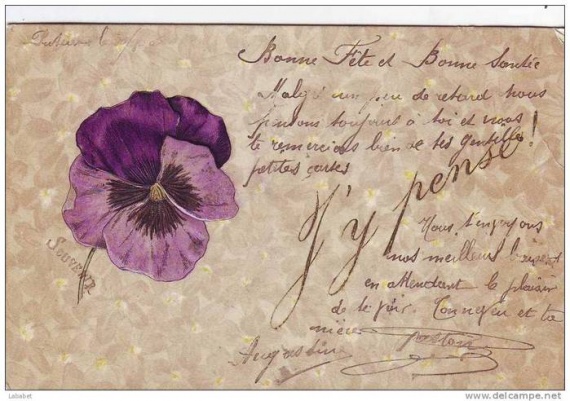 Bonne Fête et Bonne Santée
Malgré un peu de retard nous
pensons toujours à toi et nous
te remercions bien de tes gentilles
petites cartes
J'y pense!
Souvenir
Nous t'envoyons
nos meilleurs baisers
en attendant le plaisir
de te voir. Ton neveu et ta
nièce
Augustine
Lalabet
delcampe.net